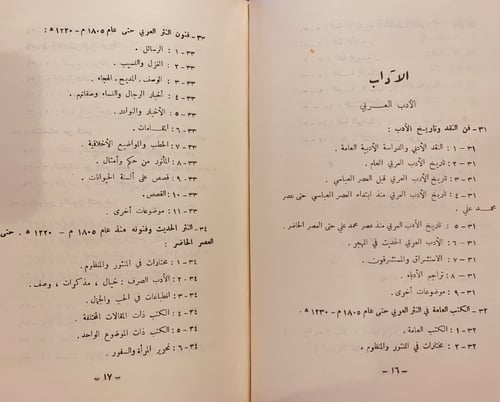 الآداب
الأدب العربي
٣١- فن النقد وتاريخ الأدب :
٣١ - ١ : النقد الأدبي والدراسة الأدبية العامة .
٣١ - ٢ : تاريخ الأدب العربي العام .
٣١ - ٣ : تاريخ الأدب العربي قبل العصر العباسي .
٣١ - ٤ : تاريخ الأدب العربي منذ ابتداء العصر العباسي حتى عصر
محمد علي .
٣١ - ٥ : تاريخ الأدب العربي منذ عصر محمد علي حتى العصر الحاضر .
٣١ - ٦ : الأدب العربي الحديث في المهجر .
٣١ - ٧ : الاستشراق والمستشرقون .
٣١ - ٨ : تراجم الأدباء .
٣١ - ٩ : موضوعات أخرى .
٣٢ - الكتب العامة في النثر العربي حتى عام ١٨٠٥ م - ١٢٣٠ ه .
٣٢ - ١ : الكتب العامة .
٣٢ - ٢ : مختارات في المنثور والمنظوم .
– ١٦ –
٣٣ - فنون النثر العربي حتى عام ١٨٠٥ م - ١٢٢٠ ه :
٣٣ - ١ : الرسائل .
٣٣ - ٢ : الغزل والنسيب .
٣٣ - ٣ : الوصف . المديح . الهجاء .
٣٣ - ٤ : أخبار الرجال والنساء وصفاتهم .
٣٣ - ٥ : الأخبار والنوادر .
٣٣ - ٦ : المقامات .
٣٣ - ٧ : الخطب والمواضيع الأخلاقية .
٣٣ - ٨ : المأثور من حكم وأمثال .
٣٣ - ٩ : قصص على ألسنة الحيوانات .
٣٣ - ١٠ : القصص .
٣٣ - ١١ : موضوعات أخرى .
٣٤ - النثر الحديث وفنونه منذ عام ١٨٠٥ م - ١٢٢٠ ه . حتى
العصر الحاضر :
٣٤ - ١ : مختارات في المنثور والمنظوم .
٣٤ - ٢ : الأدب الصرف : خيال ، مذكرات ، وصف .
٣٤ - ٣ : انطباعات في الحب والجمال .
٣٤ - ٤ : الكتب ذات المقالات المختلفة .
٣٤ - ٥ : الكتب ذات الموضوع الواحد .
٣٤ - ٦ : تحرير المرأة والسفور .
– ١٧ –